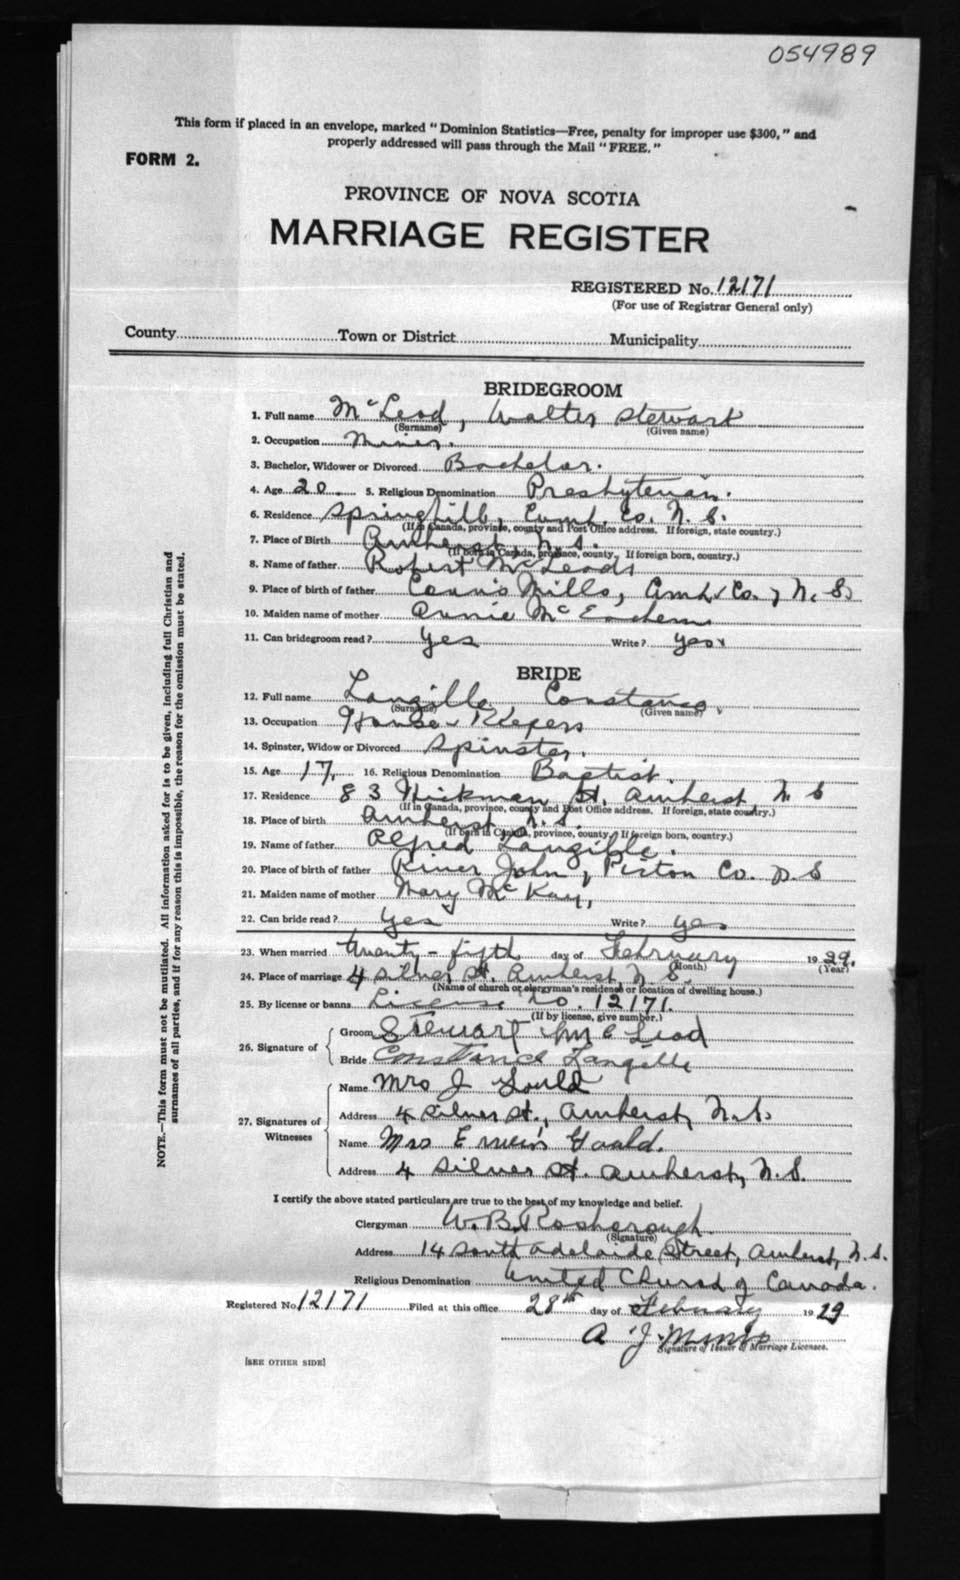 054989
This form if placed in an envelope, marked "Dominion Statistics—Free, penalty for improper use $300," and
properly addressed will pass through the Mail "FREE."
FORM 2.
PROVINCE OF NOVA SCOTIA
MARRIAGE REGISTER
REGISTERED No. 12171
(For use of Registrar General only)
County Town or District Municipality
BRIDEGROOM
1. Full name McLeod, Walter Stewart
(Surname) (Given name)
2. Occupation Miner.
3. Bachelor, Widower or Divorced Bachelor.
4. Age 20 5. Religious Denomination Presbyterian.
6. Residence Springhill, Cumb. Co. N. S.
(If in Canada, province, county and Post Office address. If foreign, state country.)
7. Place of Birth Amherst, N.S.
(If born in Canada, province, county. If foreign born, country.)
8. Name of father Robert McLeod
9. Place of birth of father Mills, Co., N. S.
10. Maiden name of mother Annie McEachern
11. Can bridegroom read? Yes Write? Yes
BRIDE
12. Full name Langille Constance.
(Surname) (Given name)
13. Occupation House Keeper
14. Spinster, Widow or Divorced Spinster.
15. Age 17, 16. Religious Denomination Baptist.
17. Residence 83 Hickman St. Amherst, N. S
(If in Canada, province, county and Post Office address. If foreign, state country.)
18. Place of birth Amherst, N.S.
(If born in Canada, province, county. If foreign born, country.)
19. Name of father Alfred Langille.
20. Place of birth of father River John, Pictou Co. N.S
21. Maiden name of mother Mary McKay,
22. Can bride read? Yes Write? Yes
23. When married twenty-fifth day of February 1929.
(Month) (Year)
24. Place of marriage 4 Silver St. Amherst, N. S.
(Name of church or clergyman's residence or location of dwelling house.)
25. By license or banns License No. 12171.
(If by license, give number.)
26. Signature of Groom Stewart McLeod
Bride Constance Langille
27. Signatures of Witnesses
Name Mrs J Gould
Address 4 Silver St., Amherst, N.S.
Name Mrs Gould.
Address 4 Silver St. Amherst, N.S.
I certify the above stated particulars are true to the best of my knowledge and belief.
Clergyman W. B. Rosborough
(Signature)
Address 14 South Adelaide Street, Amherst, N.S.
Religious Denomination United Church of Canada.
Registered No 12171 Filed at this office 28th day of February 1929
A. J.
Signature of Issuer of Marriage Licenses.
[SEE OTHER SIDE]
NOTE.—This form must not be mutilated. All information asked for is to be given, including full Christian and
surnames of all parties, and if for any reason this is impossible, the reason for the omission must be stated.